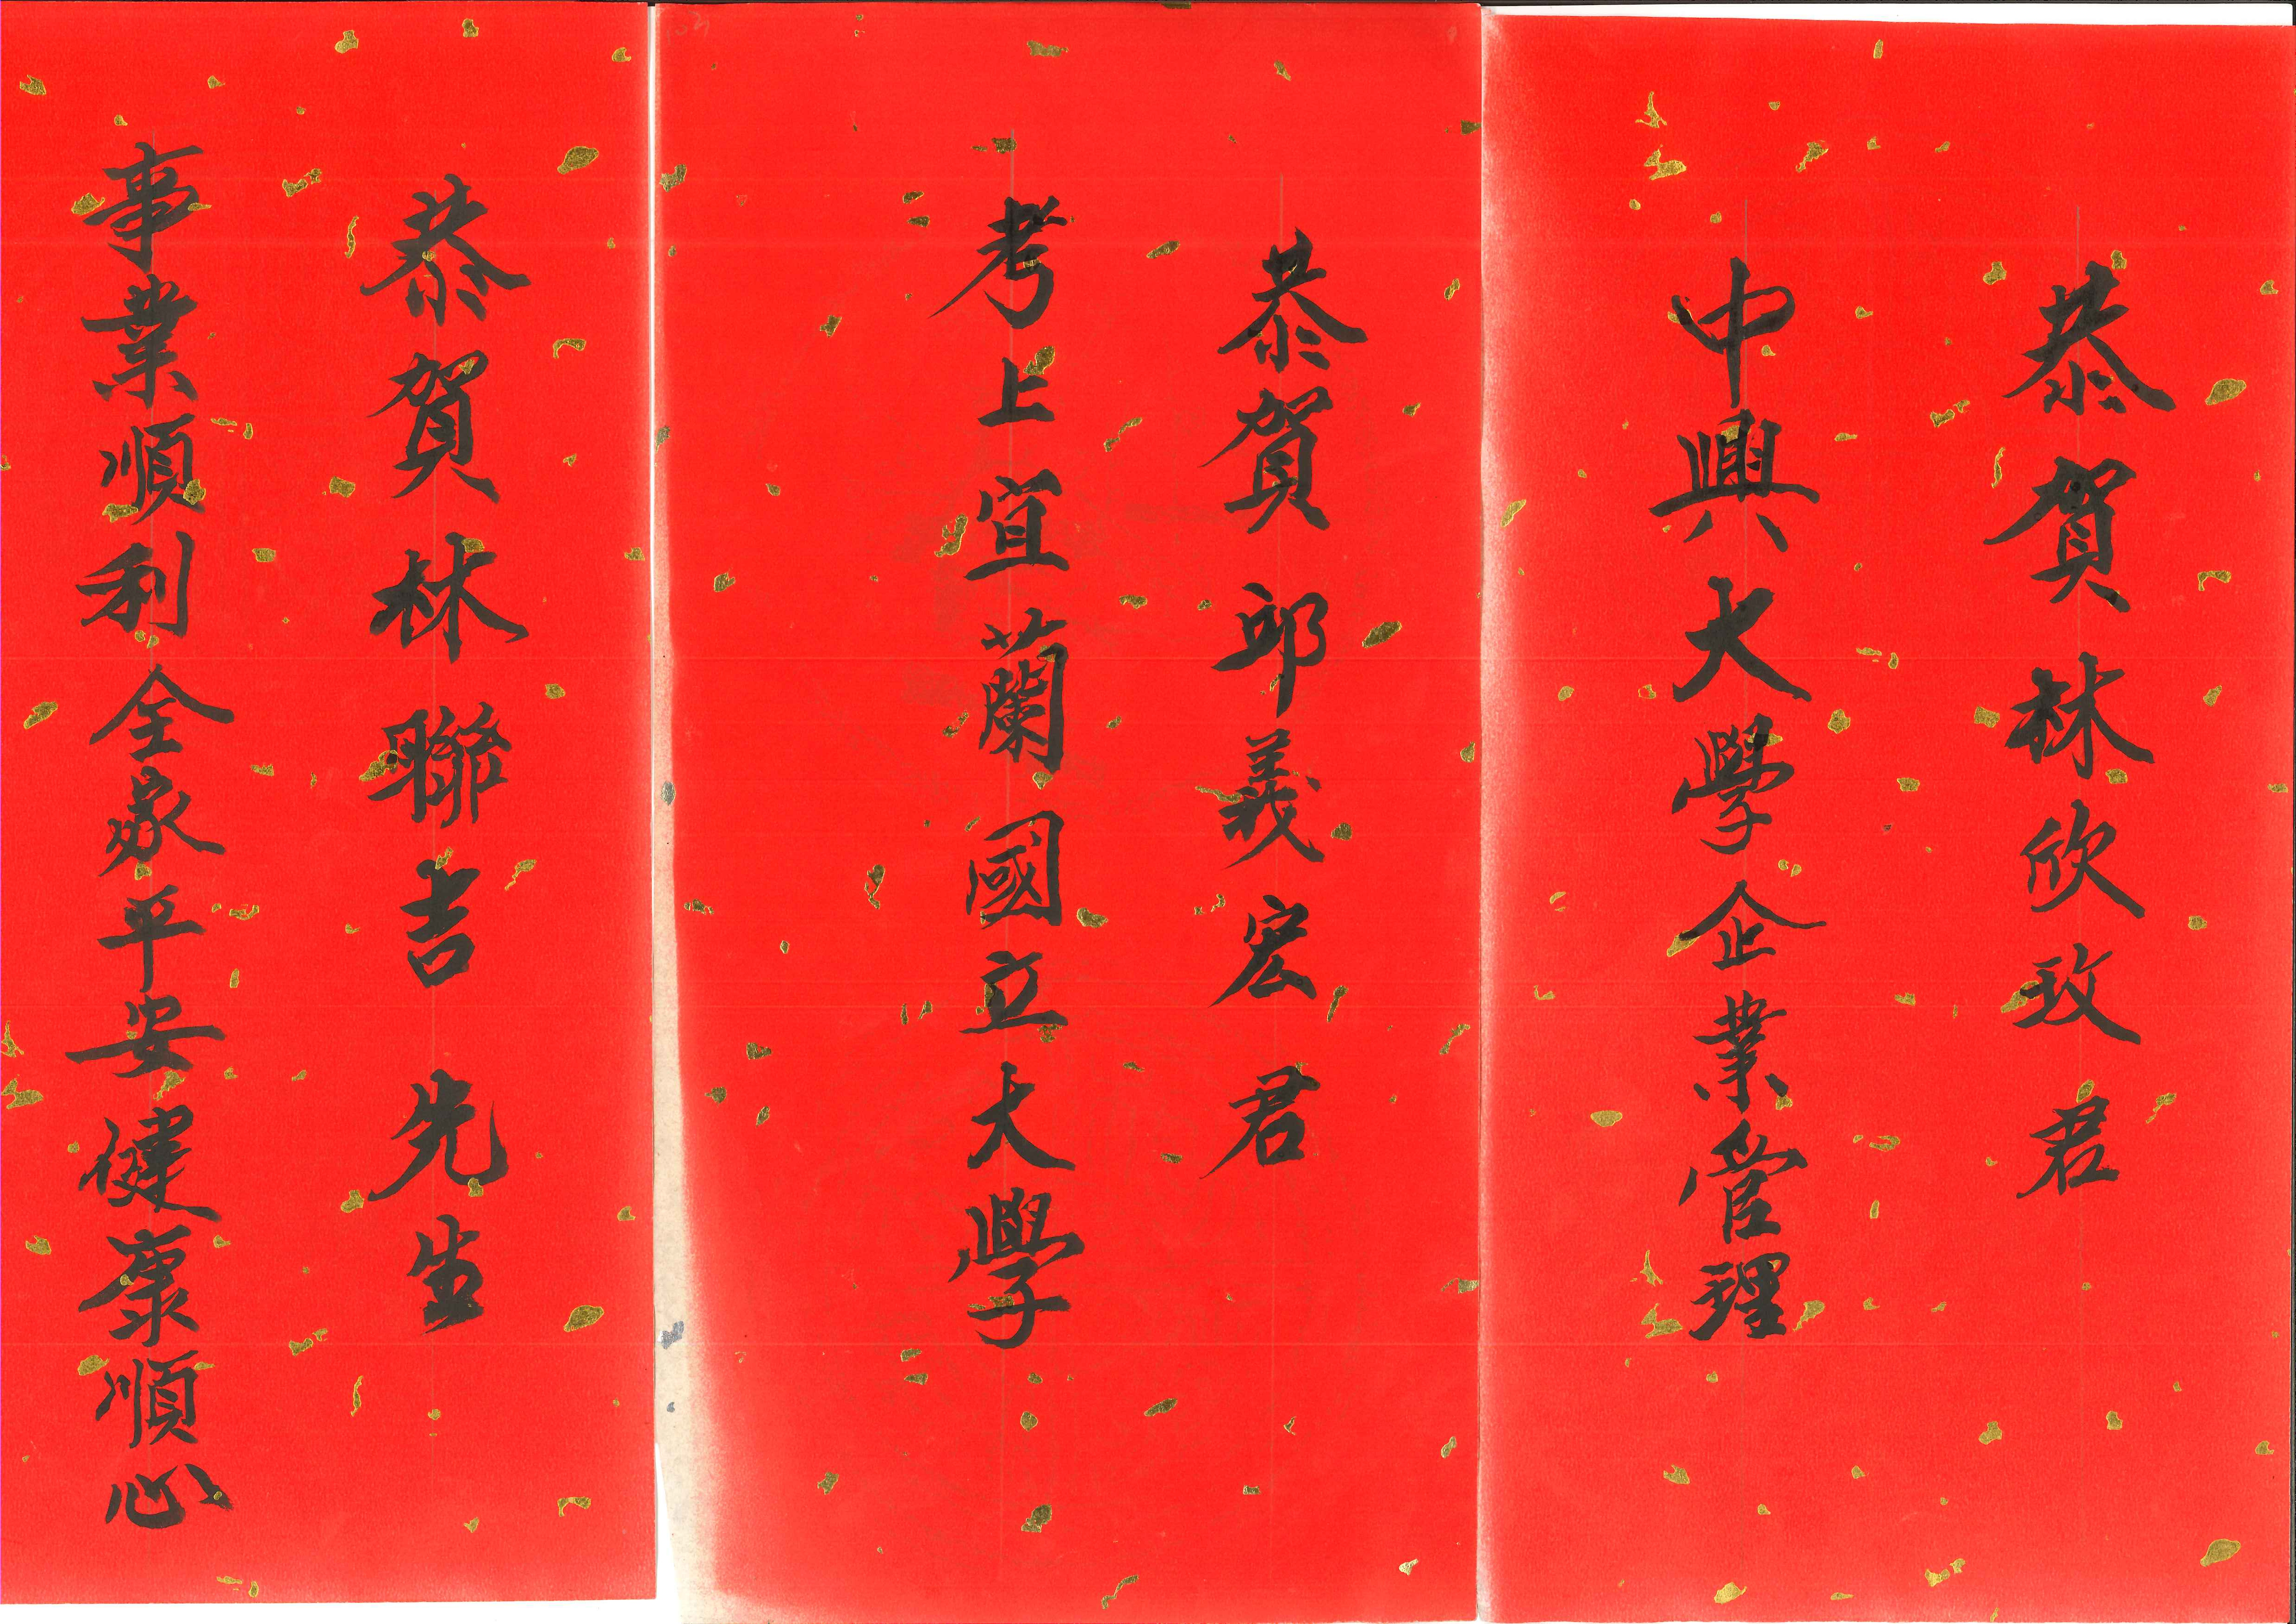 恭賀林欣玫君
中興大學企業管理
恭賀邱義宏君
考上宜蘭國立大學
恭賀林聯吉先生
事業順利全家平安健康順心